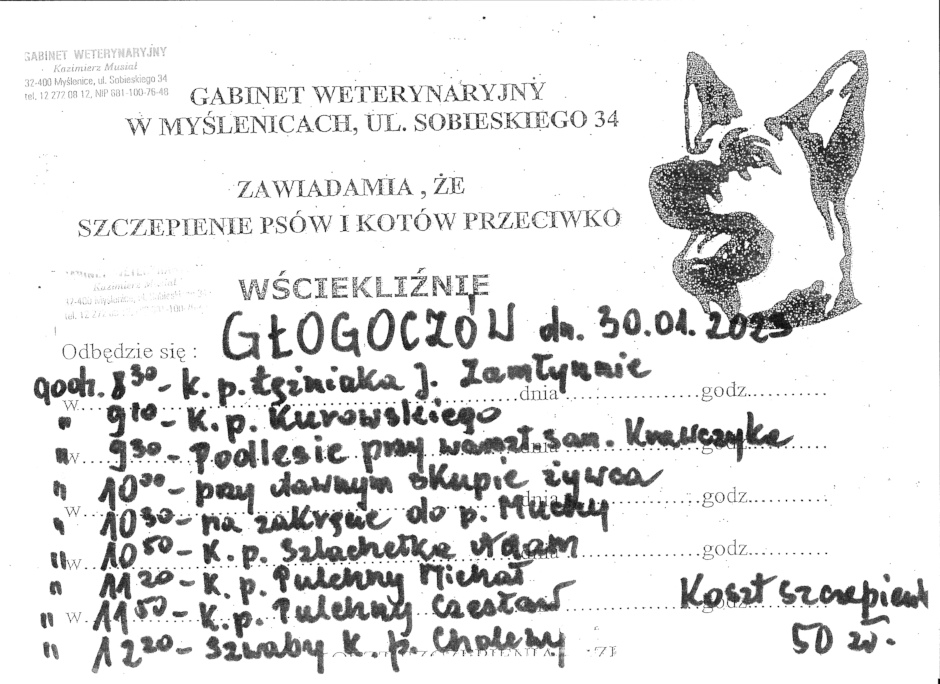 GABINET WETERYNARYJNY
Kazimierz Musiał
32-400 Myślenice, ul. Sobieskiego 34
tel. 12 272 08 12, NIP 681-100-76-48
GABINET WETERYNARYJNY
W MYŚLENICACH, UL. SOBIESKIEGO 34
ZAWIADAMIA , ŻE
SZCZEPIENIE PSÓW I KOTÓW PRZECIWKO
WŚCIEKLIŹNIE
Kazimierz Musiał
Odbędzie się : GŁOGOCZÓW dn. 30.01.2023
godz. 8 30 - K. p. Łęźniaka J. Zamłynnie
w dnia godz.
" 9 10 - K. p. Kurowskiego
" 9 30 - Podlesie przy warszt. sam. Krawczyka
w godz.
" 10 00 - przy dawnym skupie żywca
w dnia godz.
" 10 30 - na zakręcie do p. Muchy
" 10 50 - K. p. Szlachetka Adam
w dnia godz.
" 11 20 - K. p. Pulchny Michał
" 11 50 - K. p. Pulchny Czesław
w godz.
Koszt szczepień
50 zł.
" 12 20 - Szwaby K. p. Cholewy